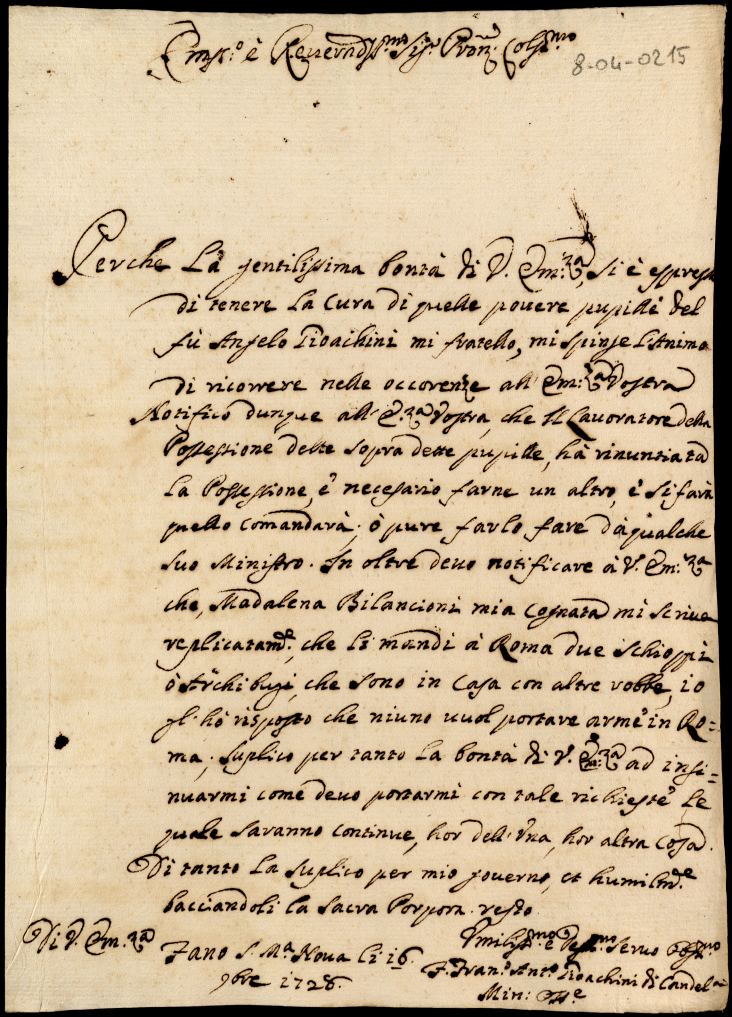 Em.º è Reverendss.mo Sig.r Pron. Col.mo
8-04-0215
Perche La gentilissima bontà di V. Em.za, si è espressa
di tenere La Cura di quelle povere pupille del
fù Angelo Gioachini mi fratello, mi spinse L'Animo
di ricorrere nelle occorenze all'Em.za Vostra
Notifico dunque all'E.za Vostra, che Il Lavoratore della
Possessione delle sopra dette pupille, hà rinuntiata
La Possessione, è necesario farne un altro, è si farà
quello comandarà; ò pure farlo fare dà qualche
suo Ministro. In oltre devo notificare à V. Em.za
che, Madalena Bilancioni mia Cognata mi scrive
replicatam.te, che Li mandi à Roma due schioppi
ò Archibugi, che sono in Casa con altre robbe, io
gl'hò risposto che niuno vuol portare arme in Ro=
ma; suplico per tanto La bontà di V. Em.za ad insi=
nuarmi come devo portarmi con tale richieste Le
quale saranno continue, hor dell'Una, hor altra Cosa.
Di tanto La suplico per mio governo, et humilm.te
bacciandoli La Sacra Porpora resto
Di V. Em.za
Fano S. M.a Nova Li 16
9bre 1728.
Umiliss.mo è Dev.mo Servo Oss.mo
F. Fran.o Ant.o Gioachini di Candelara
Min: Oss.e